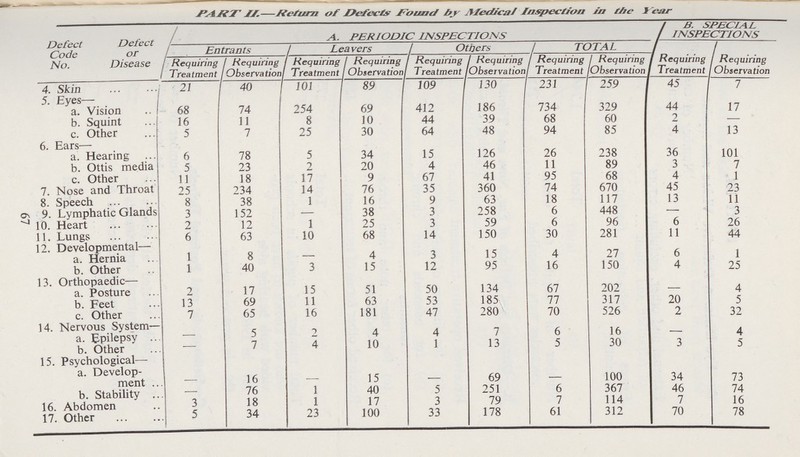 PART II.—Return of Defects Found by Medical Inspection in the Year
Defect Code No. Defect or Disease A. PERIODIC INSPECTIONS B. SPECIAL INSPECTIONS
Entrants Leavers Others TOTAL
Requiring Treatment Requiring Observation Requiring Treatment Requiring Observation Requiring Treatment Requiring Observation Requiring Treatment Requiring Observation Requiring Treatment Requiring Observation
4. Skin ... ... 21 40 101 89 109 130 231 259 45 7
5. Eyes—
a. Vision .. 68 74 254 69 412 186 734 329 44 17
b. Squint ... 16 11 8 10 44 39 68 60 2 —
c. Other ... 5 7 25 30 64 48 94 85 4 13
6. Ears—
a. Hearing ... 6 78 5 34 15 126 26 238 36 101
b. Ottis media 5 23 2 20 4 46 11 89 3 7
c. Other ... 11 18 17 9 67 41 95 68 4 1
7. Nose and Throat 25 234 14 76 35 360 74 670 45 23
8. Speech ... ... 8 38 1 16 9 63 18 117 13 11
9. Lymphatic Glands 3 152 — 38 3 258 6 448 — 3
10. Heart ... ... 2 12 1 25 3 59 6 96 6 26
11. Lungs ... ... 6 63 10 68 14 150 30 281 11 44
12. Developmental—
a. Hernia ... 1 8 — 4 3 15 4 27 6 1
b. Other .. 1 40 3 15 12 95 16 150 4 25
13. Orthopaedic—
a. Posture ... 2 17 15 51 50 134 67 202 — 4
b. Feet ... 13 69 11 63 53 185 77 317 20 5
c. Other ... 7 65 16 181 47 280 70 526 2 32
14. Nervous System—
a. Epilepsy ... — 5 2 4 4 7 6 16 — 4
b. Other ... — 7 4 10 1 13 5 30 3 5
15. Psychological—
a. Develop-
ment ... — 16 — 15 — 69 — 100 34 73
b. Stability ... — 76 1 40 5 251 6 367 46 74
16. Abdomen .. 3 18 1 17 3 79 7 114 7 16
17. Other ... ... 5 34 23 100 33 178 61 312 70 78
67